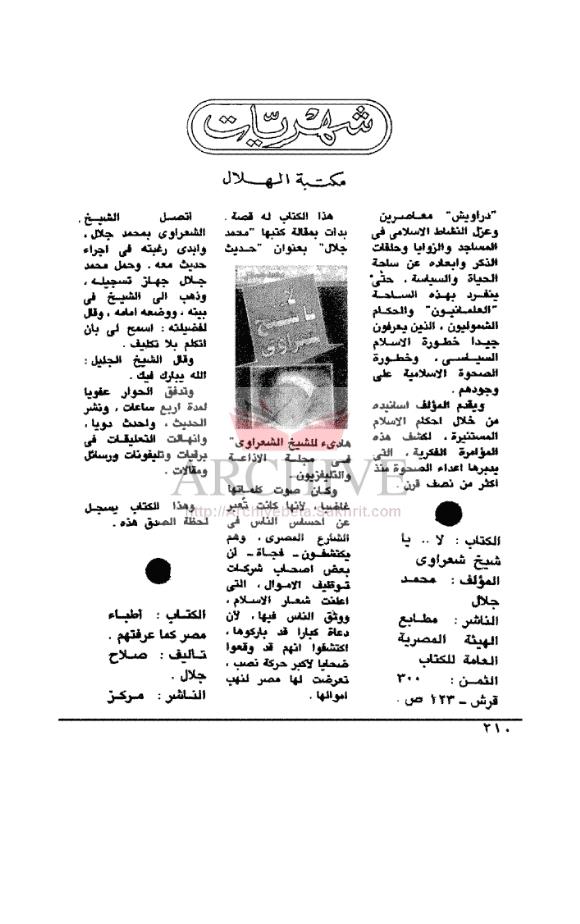 شهريّات
مكتبة الهلال
"دراويش" معاصرين
وعزل النشاط الاسلامى فى
المساجد والزوايا وحلقات
الذكر وابعاده عن ساحة
الحياة والسياسة ، حتى
ينفرد بهذه الساحة
"العلمانيون" والحكام
الشموليون ، الذين يعرفون
جيدا خطورة الاسلام
السياسى ، وخطورة
الصحوة الاسلامية على
وجودهم .
ويقدم المؤلف اسانيده
من خلال احكام الاسلام
المستنيرة ، لكشف هذه
المؤامرة الفكرية ، التى
يدبرها اعداء الصحوة منذ
اكثر من نصف قرن .
الكتاب : لا .. يا
شيخ شعراوى
المؤلف : محمد
جلال
الناشر : مطابع
الهيئة المصرية
العامة للكتاب
الثمن : ٣٠٠
قرش – ١٢٣ ص .
هذا الكتاب له قصة .
بدات بمقالة كتبها "محمد
جلال" بعنوان "حديث
لا..
يا شيخ
شعراوى
هادىء للشيخ الشعراوى"
فى مجلة الاذاعة
والتليفزيون .
وكان صوت كلماتها
غاضبا، لأنها كانت تعبر
عن احساس الناس فى
الشارع المصرى ، وهم
يكتشفون – فجأة – ان
بعض اصحاب شركات
توظيف الاموال ، التى
اعلنت شعار الاسلام ،
ووثق الناس فيها ، لأن
دعاة كبارا قد باركوها ،
اكتشفوا انهم قد وقعوا
ضحايا لأكبر حركة نصب ،
تعرضت لها مصر لنهب
اموالها .
اتصل الشيخ
الشعراوى بمحمد جلال ،
وابدى رغبته فى اجراء
حديث معه . وحمل محمد
جلال جهاز تسجيله ،
وذهب الى الشيخ فى
بيته ، ووضعه امامه ، وقال
لفضيلته : اسمح لى بان
اتكلم بلا تكليف .
وقال الشيخ الجليل :
الله يبارك فيك .
وتدفق الحوار عفويا
لمدة اربع ساعات ، ونشر
الحديث ، واحدث دويا ،
وانهالت التعليقات فى
برقيات وتليفونات ورسائل
ومقالات .
وهذا الكتاب يسجل
لحظة الصدق هذه .
الكتاب : أطباء
مصر كما عرفتهم .
تأليف : صلاح
جلال .
الناشر : مركز
٢١٠
ARCHIVE
http://Archivebeta.Sakhrit.com